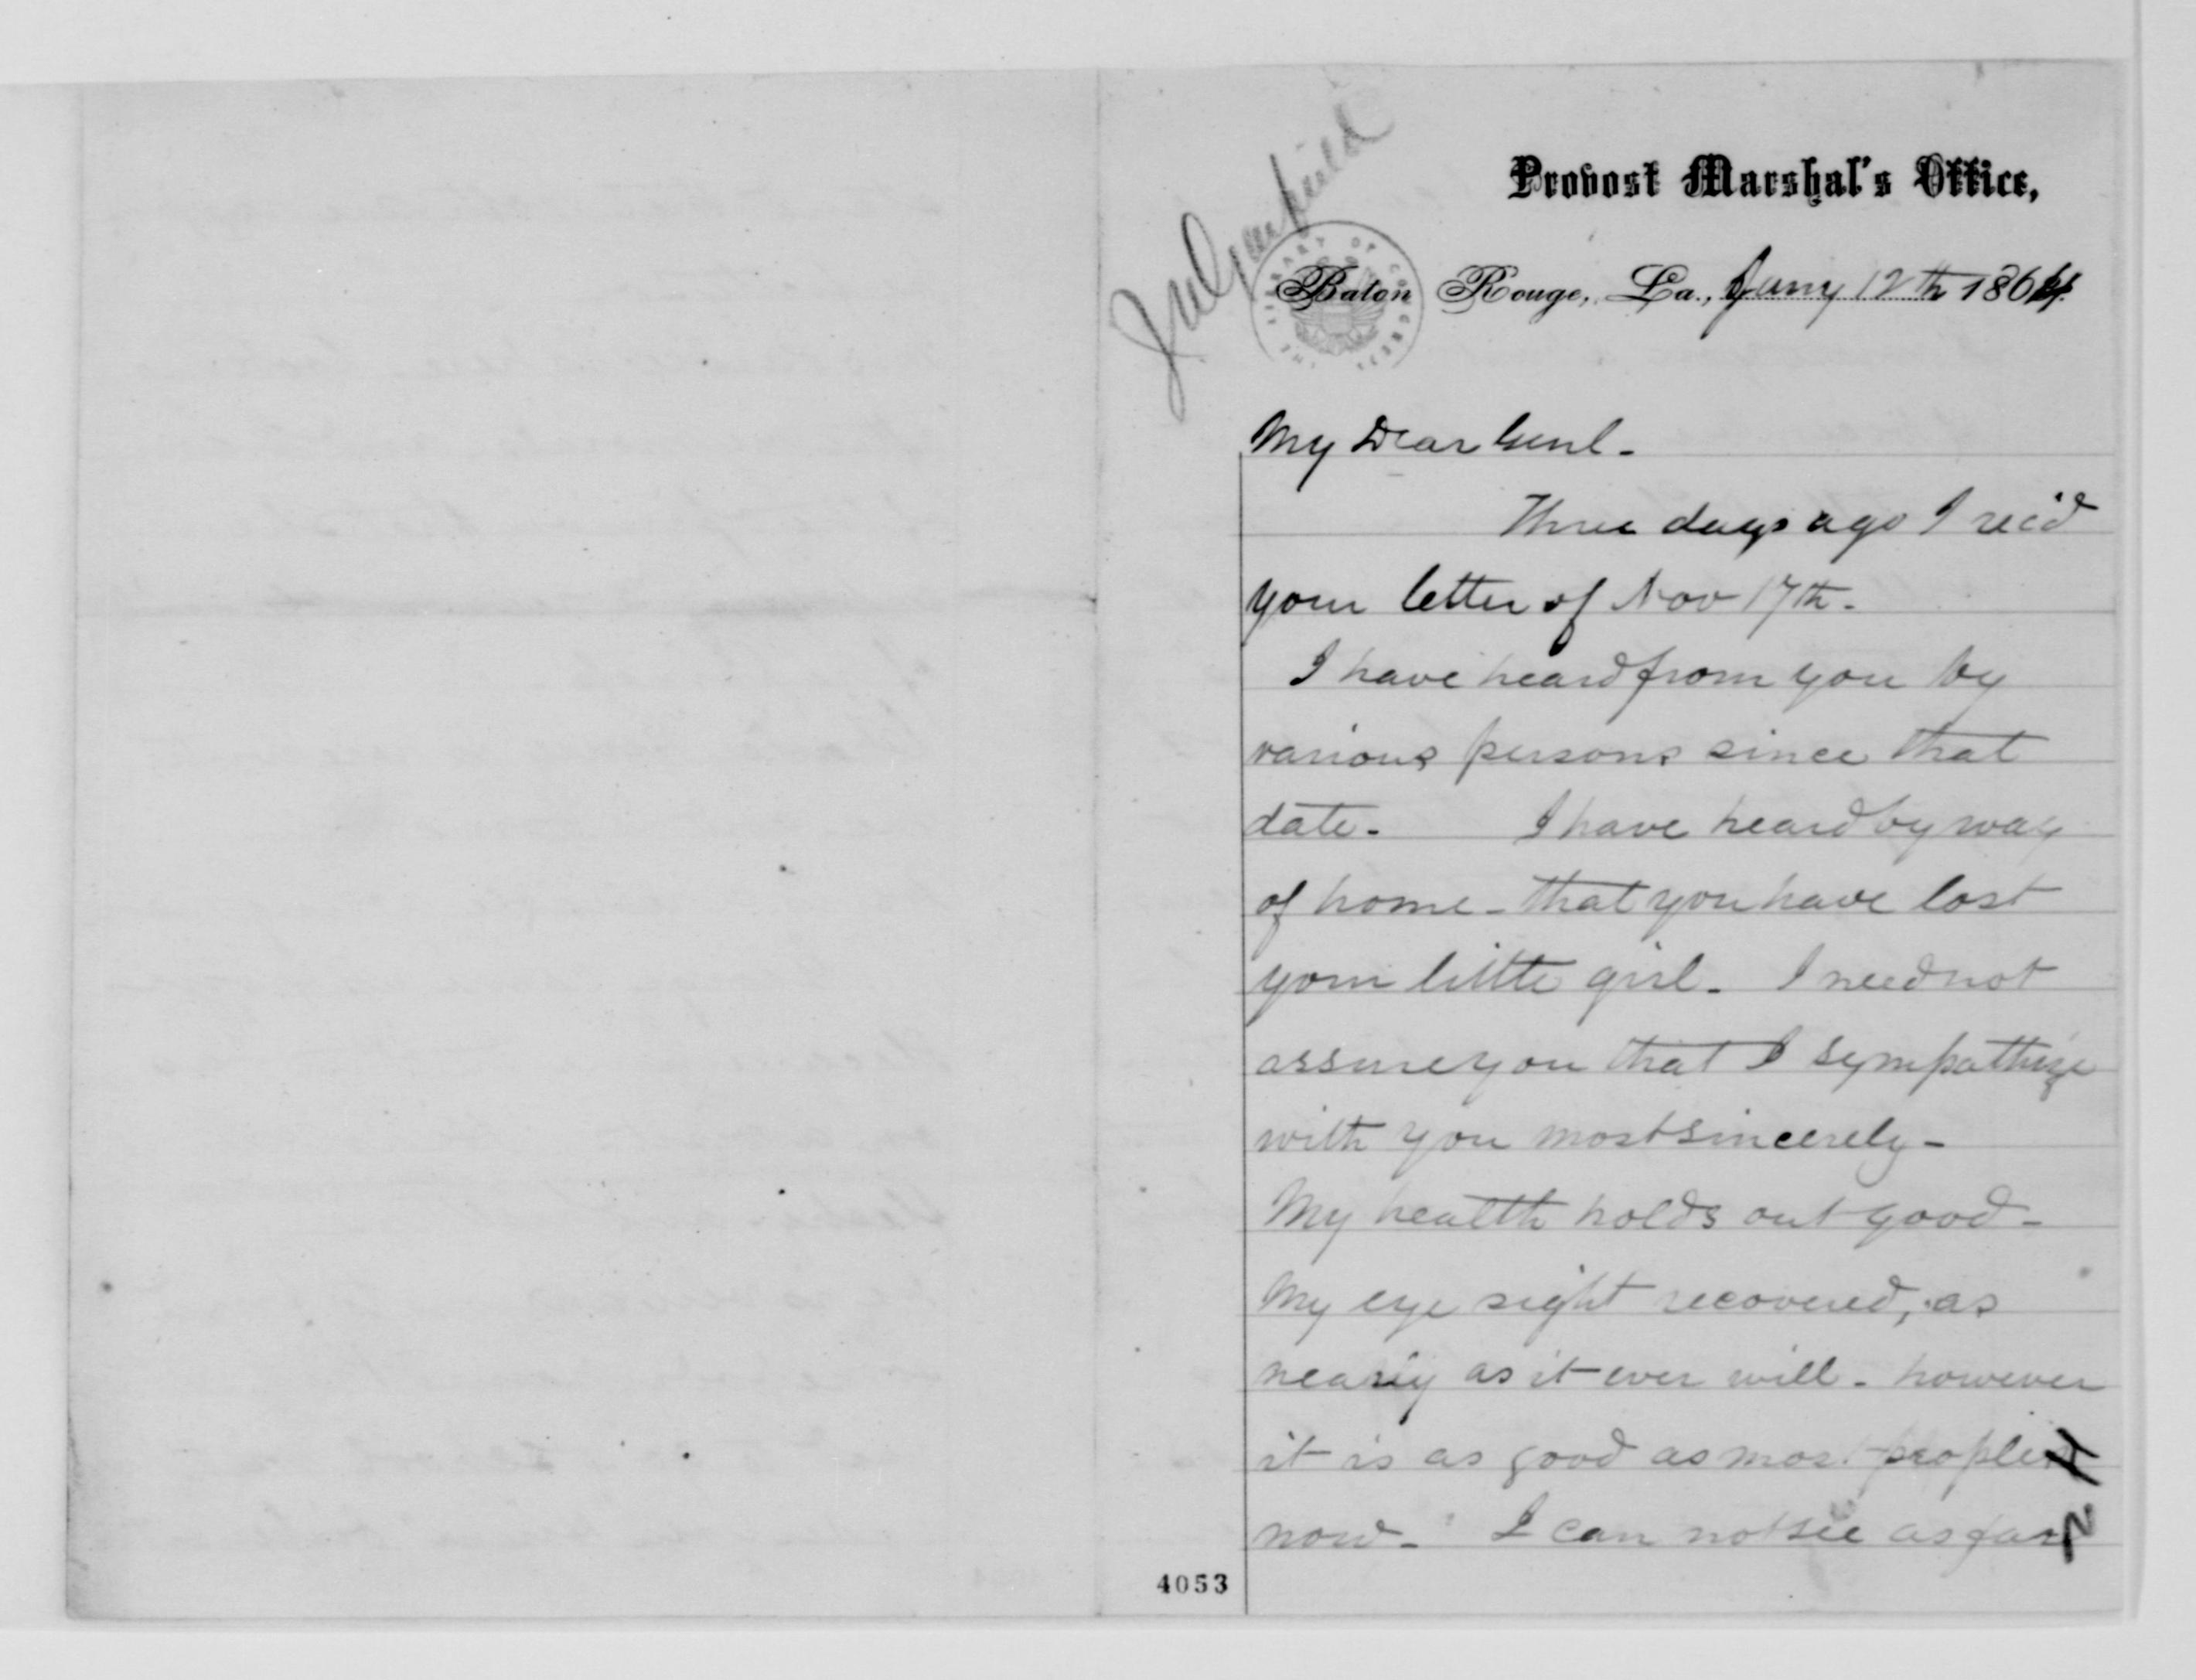 Provost Marshal's Office,
Baton Rouge, La., Jany 12th 1864
THE LIBRARY OF CONGRESS
My Dear Genl-
Three days ago I rec'd
your letter of Nov 17th-
I have heard from you by
various persons since that
date- I have heard by way
of home- that you have lost
your little girl- I need not
assure you that I sympathize
with you most sincerely-
My health holds out good-
My eye sight recovered, as
nearly as it ever will- however
it is as good as most peoples
now- I can not see as far
4053